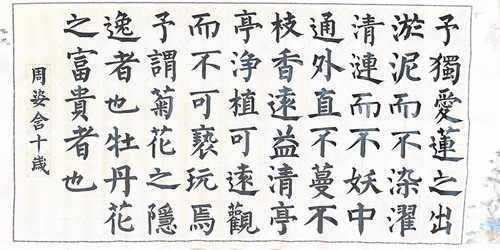 予獨愛蓮之出
淤泥而不染濯
清漣而不妖中
通外直不蔓不
枝香遠益清亭
亭浄植可遠觀
而不可褻玩焉
予謂菊花之隱
逸者也牡丹花
之富貴者也
周姿含十歲